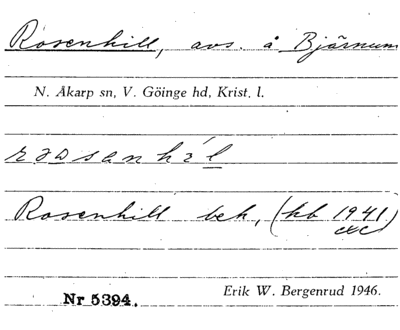 Rosenhill, avs. å Bjärnum
N. Åkarp sn, V. Göinge hd, Krist. l.
Rosenhill beb, (kb 1941)
etc
Erik W. Bergenrud 1946.
Nr 5394.